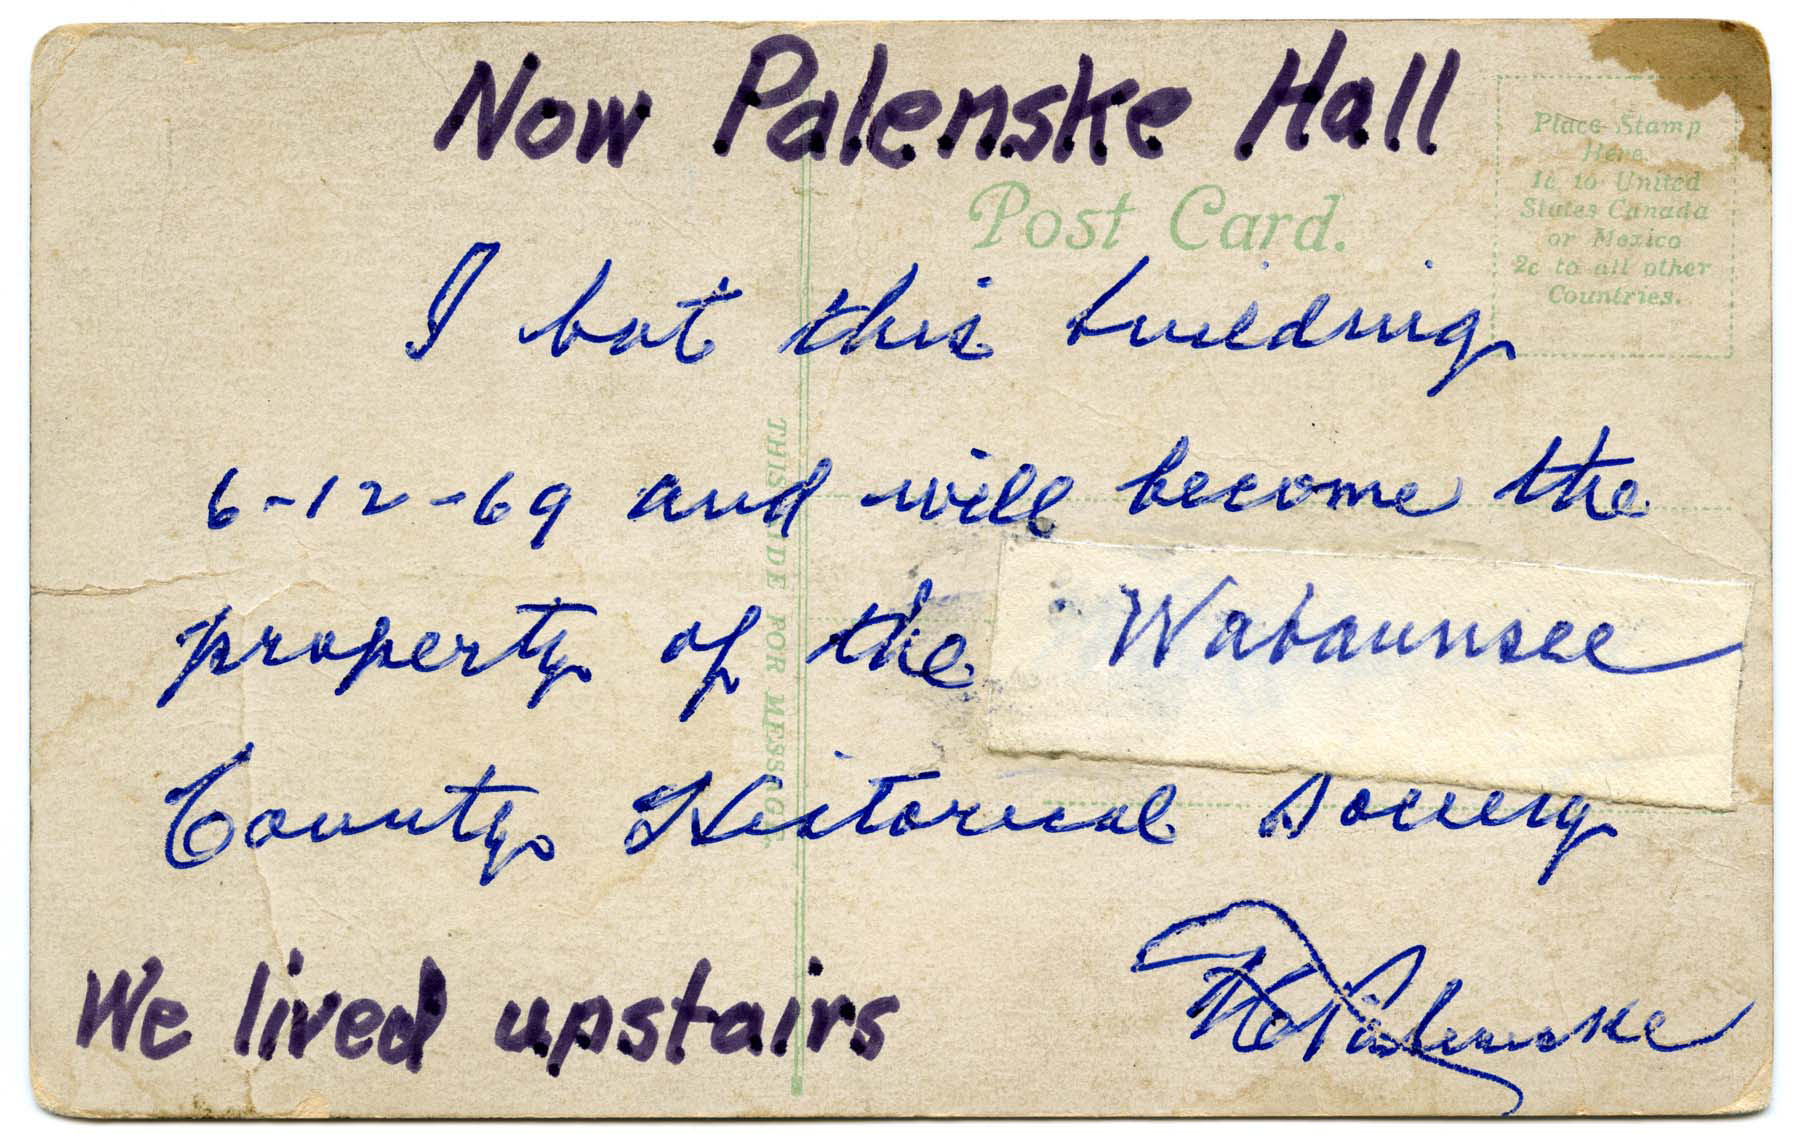 Now Palenske Hall
Post Card.
Place Stamp
Here
1c to United
States Canada
or Mexico
2c to all other
Countries.
I bot this building
6-12-69 and will become the
property of the Wabaunsee
County Historical Society
Palenske
We lived upstairs
THIS SIDE FOR MESSAGE